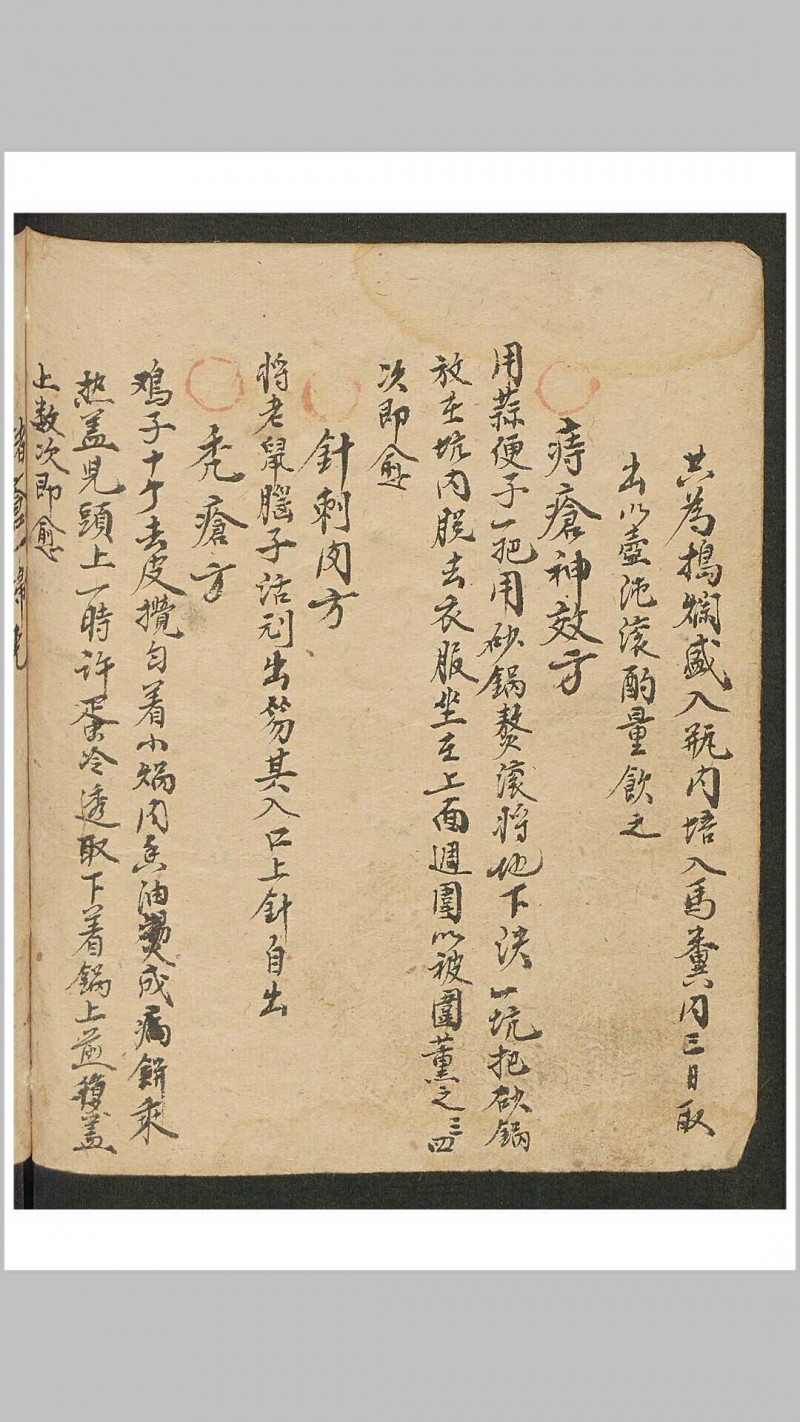 共為搗爛盛入瓶内培入馬糞内三日取
出以壺沌滚酌量飲之
痔瘡神效方
用蒜便子一把用砂锅熬滚将地下決一坑把砂锅
放在坑内脱去衣服坐在上面週圍以被圍薰之三四
次即愈
針刺肉方
将老鼠腦子活刮出笏其入口上針自出
秃瘡方
鸡子十个去皮攪匀着小锅内香油煑成病餅乘
热盖児頭上一時许蛋冷透取下着锅上煎穆盖
上数次即愈